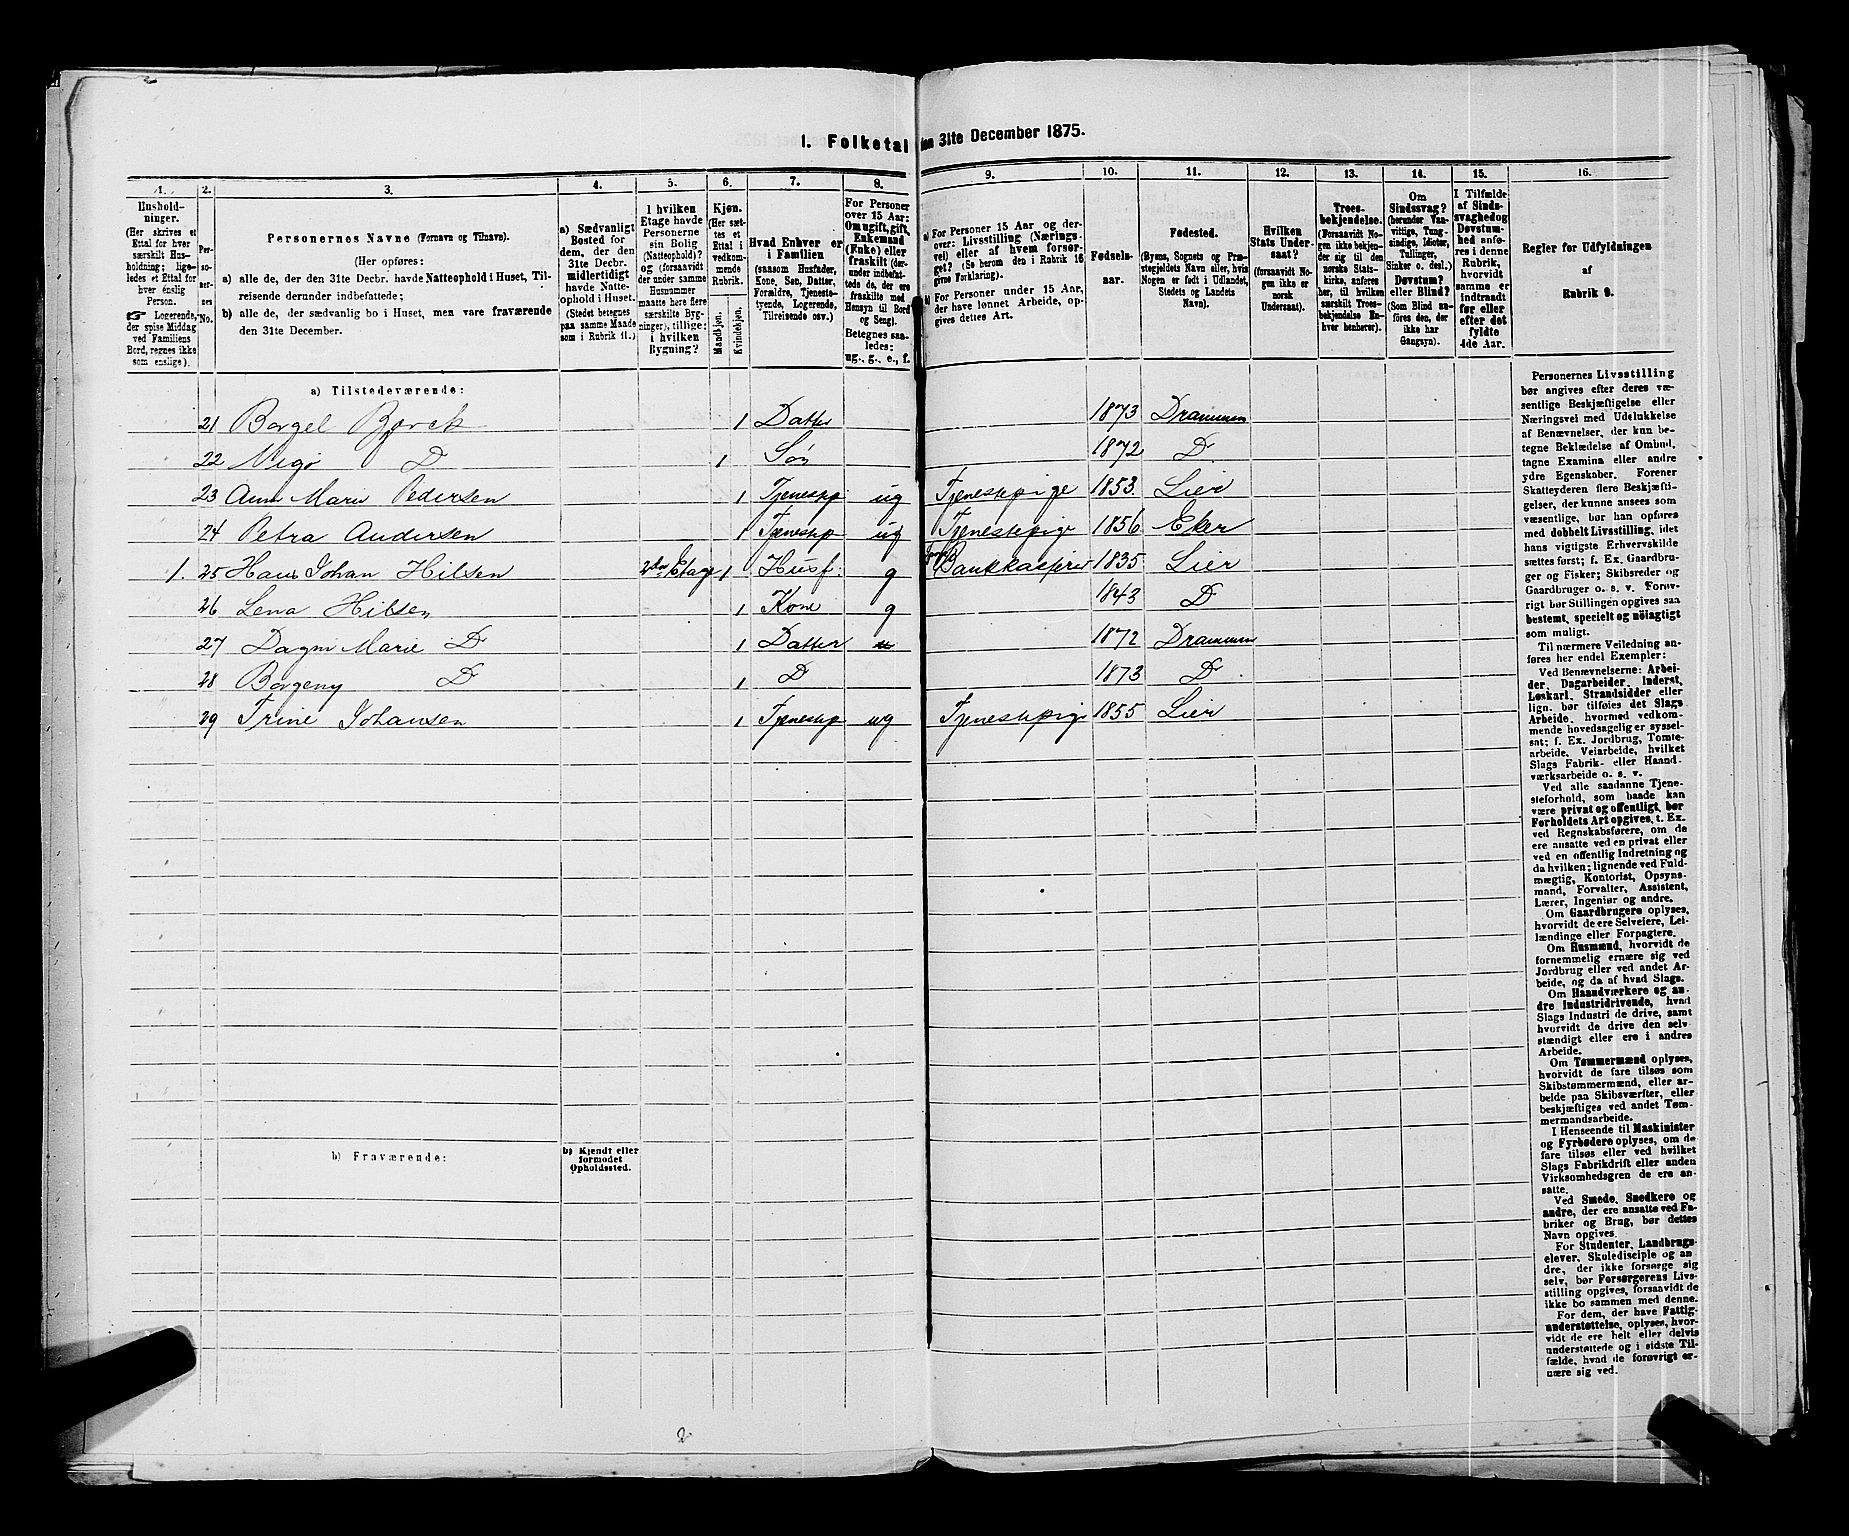 1. Folketal den 31te December 1875.
1. 2. 3. 4. 5. 6. 7. 8. 9. 10. 11. 12. 13. 14. 15. 16.
Hushold-
ninger.
(Her skrives et
Ettal for hver
særskilt Hus-
holdning; lige-
ledes et Ettal for
hver énslig
Person.
☞ Logerende,
der spise Middag
ved Familiens
Bord, regnes ikke
som enslige).
Per-
so-
ner-
nes
No.
Personernes Navne (Fornavn og Tilnavn).
(Her opføres:
a) alle de, der den 31te Decbr. havde Natteophold i Huset, Til-
reisende derunder indbefattede;
b) alle de, der sædvanlig bo i Huset, men vare fraværende
den 31te December.
a) Sædvanligt
Bosted for
dem, der den
31te Decbr.
midlertidigt
havde Natte-
ophold i Huset.
(Stedet betegnes
paa samme Maade
som i Rubrik 11.)
I hvilken
Etage havde
Personerne
sin Bolig
(Natteophold)?
og (forsaavidt
der under samme
Husnummer
maatte høre flere
særskilte Byg-
ninger), tillige:
i hvilken
Bygning?
Kjøn.
(Her sæt-
tes et
Ettal i
vedkom-
mende
Rubrik.
Mandkjøn.
Kvindekjøn.
Hvad Enhver er
i Familien
(saasom Husfader,
Kone, Søn, Datter,
Forældre, Tjeneste-
tyende, Logerende,
Tilreisende osv.)
For Personer
over 15 Aar:
Om ugift, gift,
Enkemand
(Enke) eller
fraskilt (der-
under indbefat-
tede de, der ere
fraskilte med
Hensyn til Bord
og Seng).
Betegnes saa-
ledes:
ug., g., e., f.
a) For Personer 15 Aar og der-
over: Livsstilling (Nærings-
vei) eller af hvem forsør-
get? (Se herom den i Rubrik 16
givne Forklaring).
b) For Personer under 15 Aar,
der have lønnet Arbeide, op-
gives dettes Art.
Fødsels-
aar.
Fødested.
(Byens, Sognets og Præ-
stegjeldets Navn eller, hvis
Nogen er født i Udlandet,
Stedets og Landets
Navn).
Hvilken
Stats Under-
saat?
(forsaavidt No-
gen ikke er
norsk
Undersaat).
Troes-
bekjendelse.
(Forsaavidt No-
gen ikke bekjen-
der sig til den
norske Stats-
kirke, anføres
her, til hvilken
særskilt Troes-
bekjendelse En-
hver henhører).
Om
Sindssvag?
(herunder Van-
vittige, Tung-
sindige, Idioter,
Tullinger,
Sinker o. desl.)
Døvstum?
eller Blind?
(Som Blind an-
føres den, der
ikke har
Gangsyn).
I Tilfælde
af Sinds-
svaghed og
Døvstum-
hed anfø-
res i denne
Rubrik,
hvorvidt
samme er
indtraadt
før eller
efter det
fyldte
4de Aar.
Regler for Udfyldningen
af
Rubrik 9.
a) Tilstedeværende:
21 Borgel Bjørck 1 Datter 1873 Drammen
22 Vigo D 1 Søn 1872 D
23 Ann Marie Pedersen 1 Tjenestp ug Tjenestepige 1853. Lier
24 Petra Andersen 1 Tjenestp ug Tjenestepige 1856 Eker
1. 25 Hans Johan Hilsen 2den Etage 1 Husf. g 1835 Lier
26 Lena Hilsen 1 Kone g 1843 D
27 Dagni Marie D 1 Datter 1872 Drammen
28 Borgeny D 1 D 1873 D
29 Trine Johansen 1 Tjenestp ug Tjenestepige 1855 Lier
b) Fraværende:
b) Kjendt eller
formodet
Opholdssted.
Personernes Livsstilling
bør angives efter deres væ-
sentlige Beskjæftigelse eller
Næringsvei med Udelukkelse
af Benævnelser, der kun be-
tegne Beklædelse af Ombud,
tagne Examina eller andre
ydre Egenskaber. Forener
Skatteyderen flere Beskjæfti-
gelser, der kunne ansees som
væsentlige, bør han opføres
med dobbelt Livsstilling, idet
hans vigtigste Erhvervskilde
sættes først; f. Ex. Gaardbru-
ger og Fisker; Skibsreder og
Gaardbruger o. s. v. Forøv-
rigt bør Stillingen opgives saa
bestemt, specielt og nöiagtigt
som muligt.
Til nærmere Veiledning an-
føres her endel Exempler:
Ved Benævnelserne: Arbei-
der, Dagarbeider, Inderst,
Løskarl, Strandsidder eller
lign. bør tilføies det Slags
Arbeide, hvormed vedkom-
mende hovedsagelig er syssel-
sat; f. Ex. Jordbrug, Tomte-
arbeide, Veiarbeide, hvilket
Slags Fabrik- eller Haand-
værksarbeide o. s. v.
Ved alle saadanne Tjene-
steforhold, som baade kan
være privat og offentligt, bør
Forholdets Art opgives, t. Ex.
ved Regnskabsførere, om de
ere ansatte ved en privat eller
ved en offentlig Indretning og
da hvilken; lignende ved Fuld-
mægtig, Kontorist, Opsyns-
mand, Forvalter, Assistent,
Lærer, Ingeniør og andre.
Om Gaardbrugere oplyses,
hvorvidt de ere Selveiere, Lei-
lændinge eller Forpagtere.
Om Husmænd, hvorvidt de
fornemmelig ernære sig ved
Jordbrug eller ved andet Ar-
beide, og da af hvad Slags.
Om Haandværkere og an-
dre Industridrivende, hvad
Slags Industri de drive, samt
hvorvidt de drive den selv-
stændigt eller ere i andres
Arbeide.
Om Tømmermænd oplyses,
hvorvidt de fare tilsøs som
Skibstømmermænd, eller ar-
beide paa Skibsværfter, eller
beskjæftiges ved andet Tøm-
mermandsarbeide.
I Henseende til Maskinister
og Fyrbødere oplyses, om de
fare tilsøs eller ved hvilket
Slags Fabrikdrift eller anden
Virksomhedsgren de ere an-
satte.
Ved Smede, Snedkere og
andre, der ere ansatte ved Fa-
briker og Brug, bør dettes
Navn opgives.
For Studenter, Landbrugs-
elever, Skoledisciple og an-
dre, der ikke forsørge sig
selv, bør Forsørgerens Livs-
stilling opgives, forsaavidt de
ikke bo sammen med denne.
For dem, der have Fattig-
understøttelse, oplyses, hvor-
vidt de ere helt eller delvis
understøttede og i sidste Til-
fælde, hvad de forøvrigt er-
nære sig ved.
2